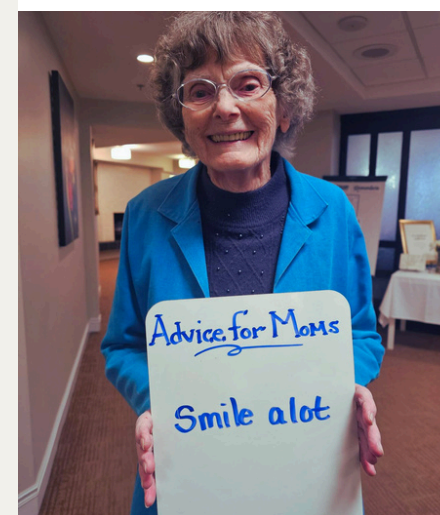 Advice for Moms
Smile alot